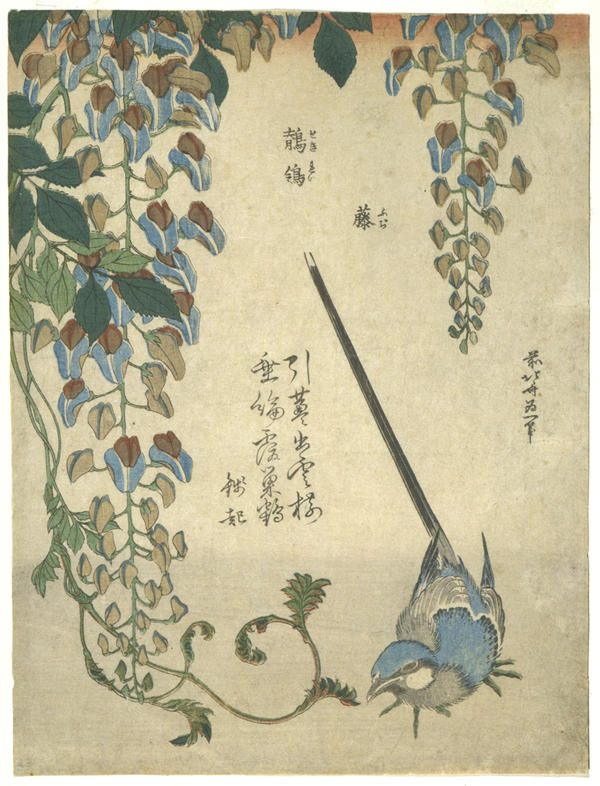 前北斎為一筆
藤
ふぢ
鶺鴒
せきれい
引蔓出雲樹
垂綸覆巣鶴
錢起